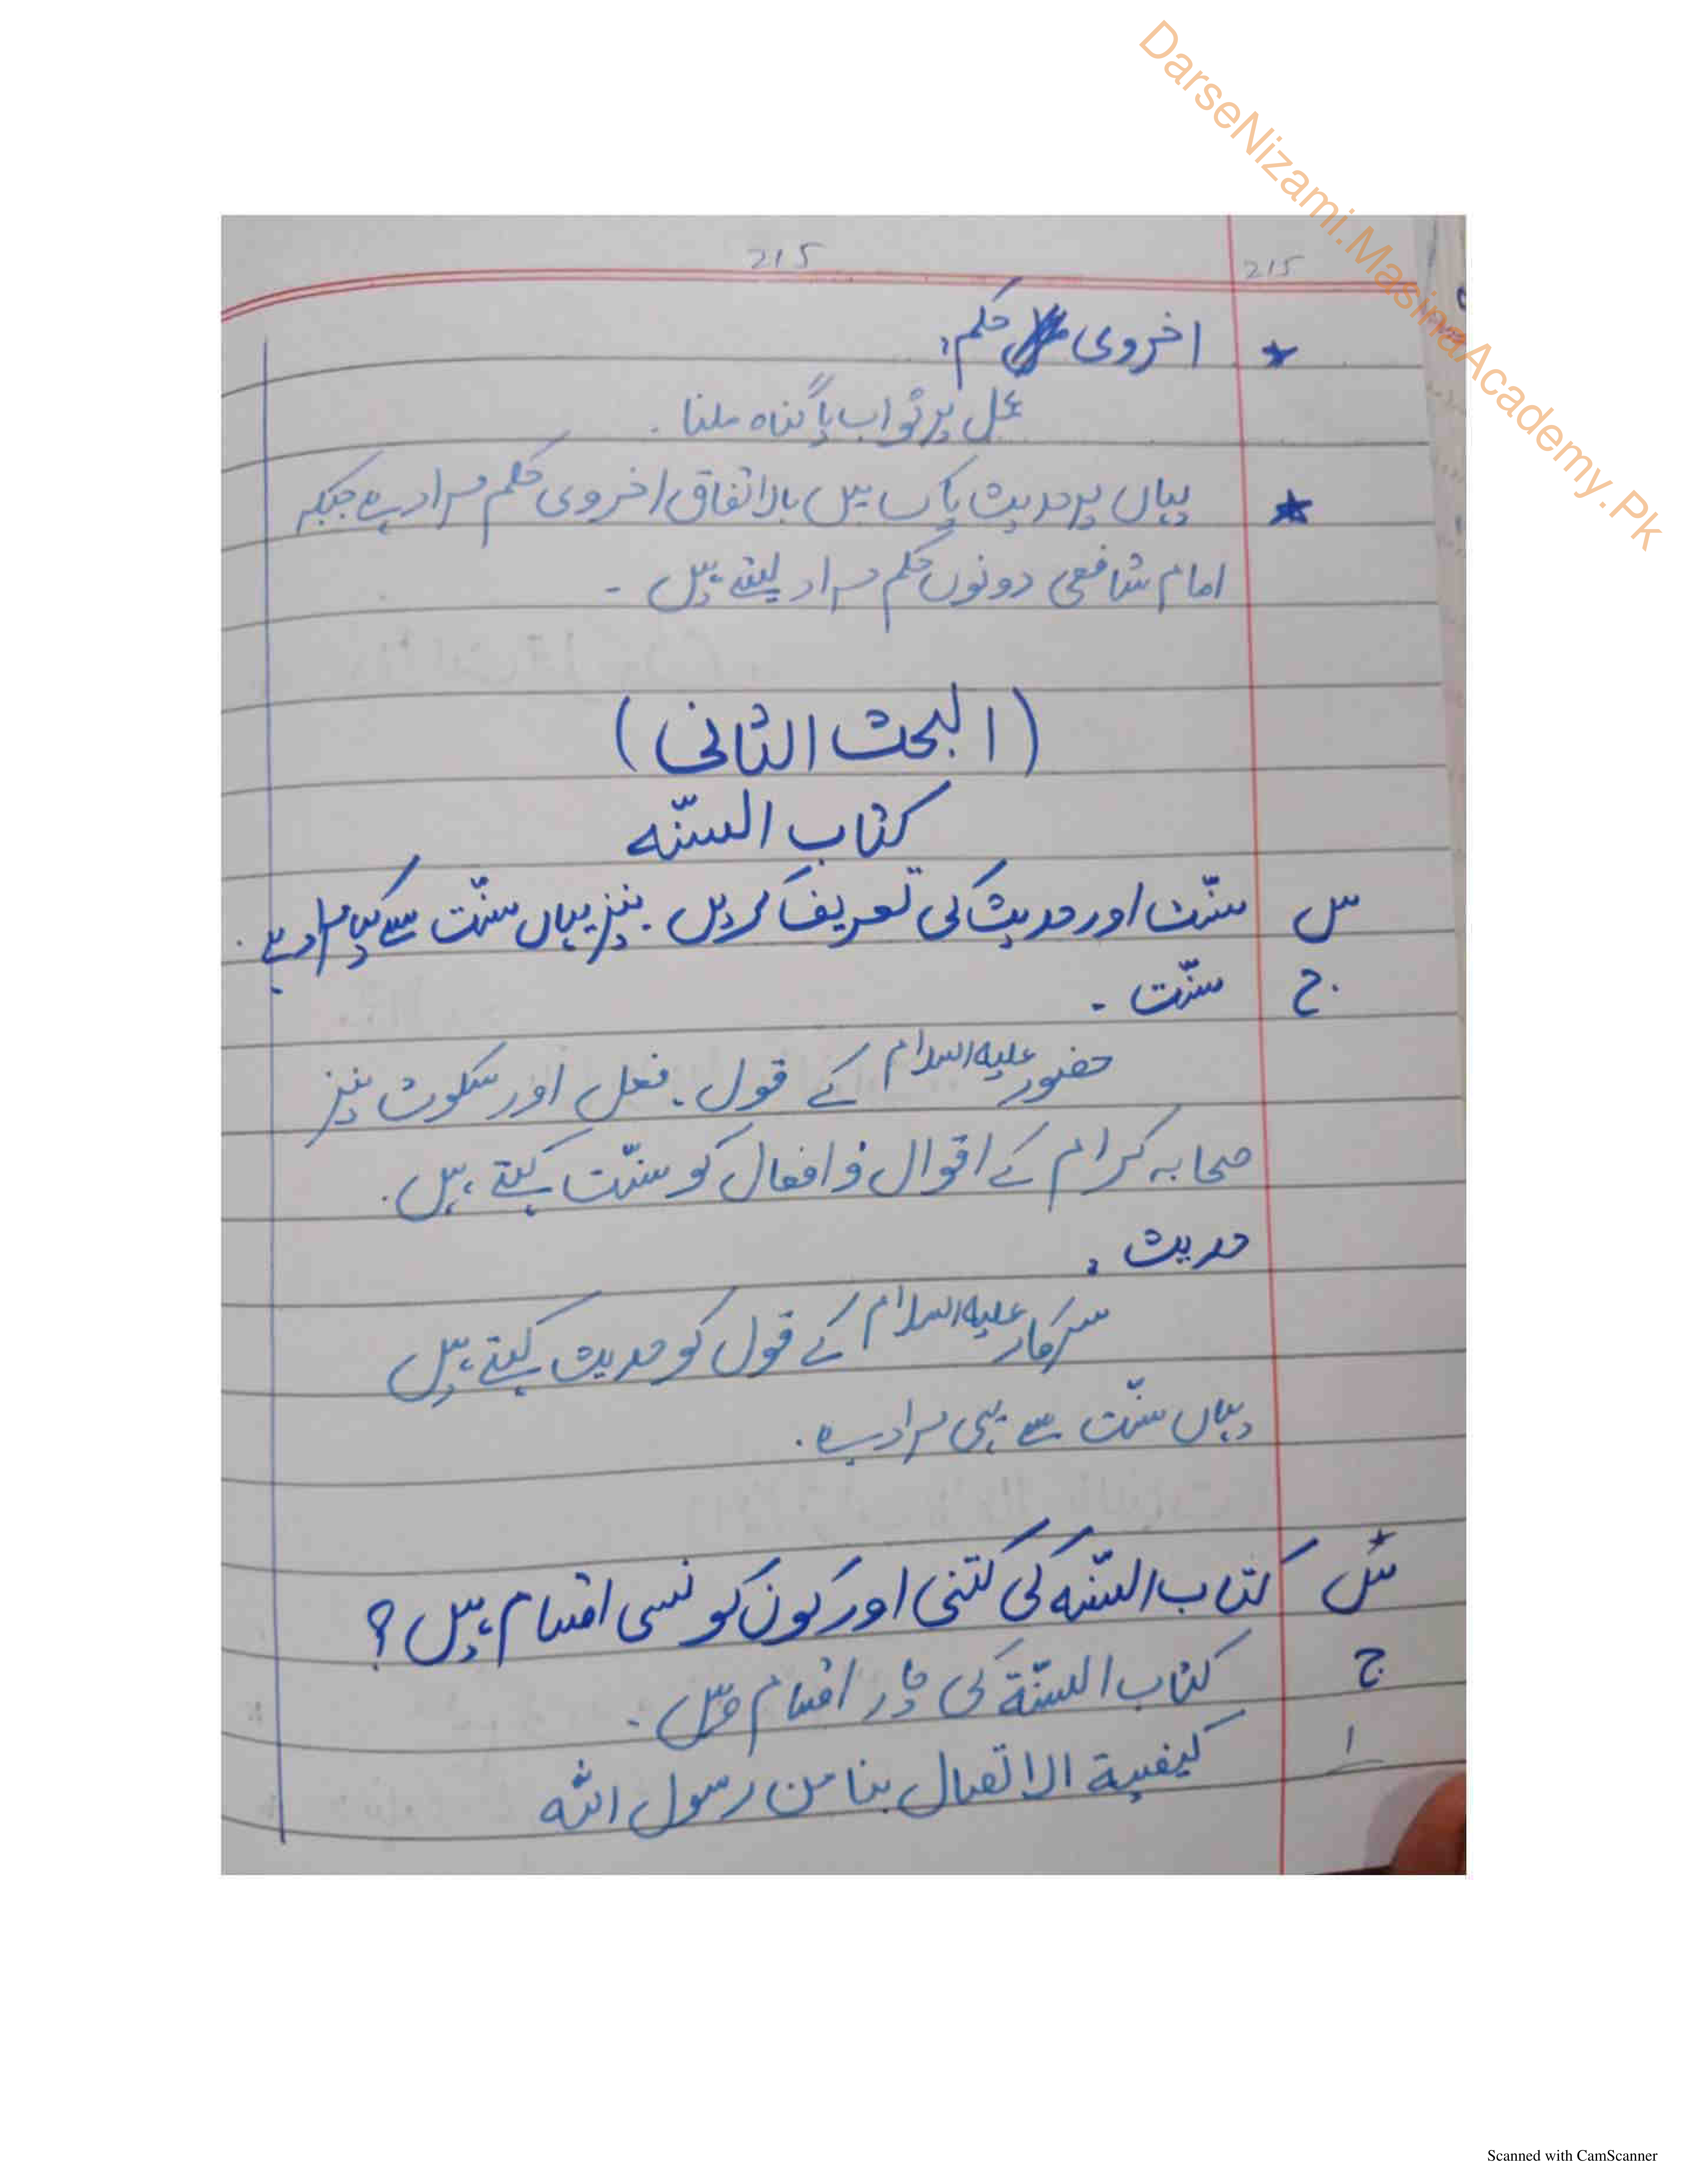 DarseNizami.MasinaAcademy.Pk
215
215
★ اخروی حکم:
عمل پر ثواب یا گناہ ملنا .
★ یہاں پر حدیث پاک میں بالاتفاق اخروی حکم مراد ہے جبکہ
امام شافعی دونوں حکم مراد لیتے ہیں -
(البحث الثانی)
کتاب السنّہ
س سنّت اور حدیث کی تعریف کریں . نیز یہاں سنّت سے کیا مراد ہے .
ج. سنّت -
حضور علیہ السلام کے قول . فعل اور سکوت نیز
صحابہ کرام کے اقوال و افعال کو سنّت کہتے ہیں .
حدیث :
سرکار علیہ السلام کے قول کو حدیث کہتے ہیں
یہاں سنّت سے یہی مراد ہے .
س کتاب السّنہ کی کتنی اور کون کونسی اقسام ہیں ؟
ج کتاب السنّة کی چار اقسام ہیں .
1 کیفیة الاتصال بنا من رسول اللہ
Scanned with CamScanner